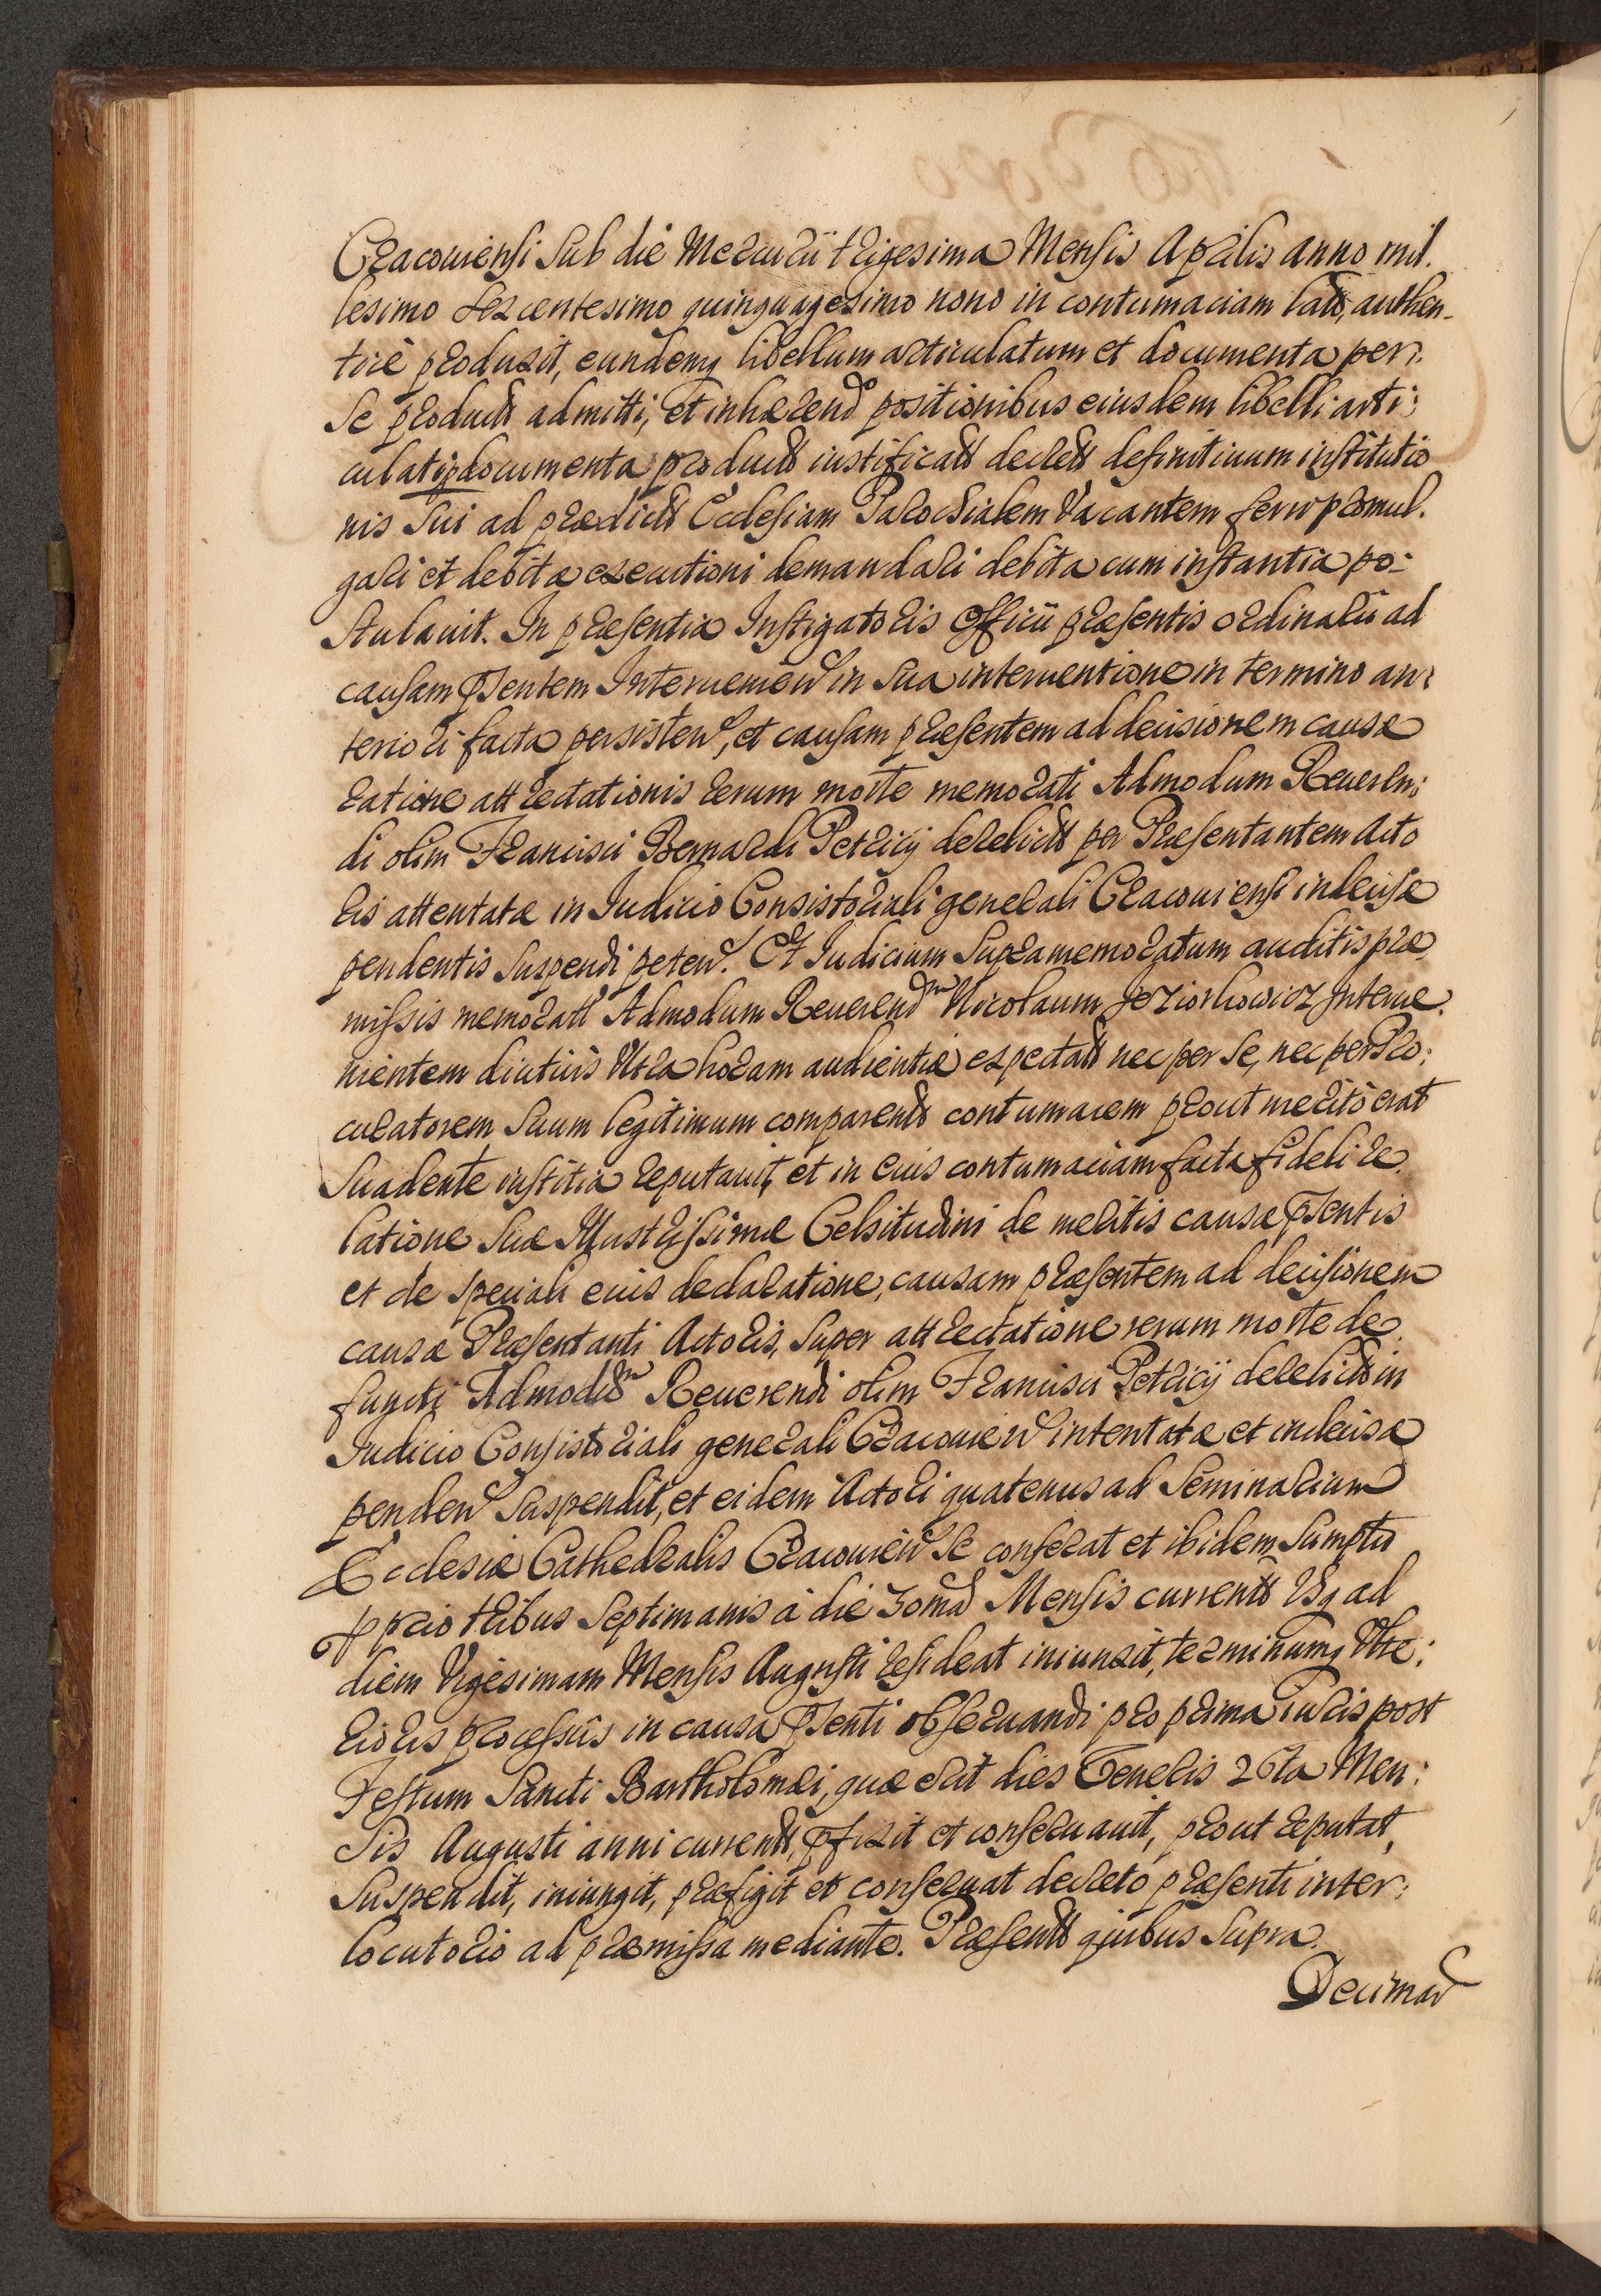 Cracouiensi Sub die Mercurii trigesima Mensis Aprilis anno mil.
lesimo sexcentesimo quinquagesimo nono in contumaciam latt, authen-
ticè produxit, eundemq libellum articulatum et documenta per
Se productt admitti, et inhærendo positionibus eiusdem libelli arti:
culatiq documenta productt iustificatt decrett definitiuum institutio
nis Sui ad prædictt Ecclesiam Parochialem Vacantem ferri promul.
gari et debitæ executioni demandari debita cum instantia po:
stulauit. In præsentia Instigatoris Officii præsentis ordinarii ad
causam pntem Interuenien in Sua interuentione in termino an:
teriori facta persisten, et causam præsentem ad decisionem causæ
ratione attrectationis rerum morte memorati Admodum Reueren:
di olim Francisci Bernardi Petricij derelictt per Præsentantem Acto
ris attentatæ in Iudicio Consistoriali generali Cracouiensi indecisæ
pendentis Suspendi peten. Et Iudicium Supramemoratum auditis præ
missis memoratt Admodum Reuerendm Nicolaum Jeziorkowicz Interue.
nientem diutius Vltra horam audientiæ expectatt nec per Se, nec per Pro:
curatorem Suum legitimum comparentt contumacem prout meritò erat
Suadente iustitia reputauit, et in eius contumaciam facta fideli re.
latione Suæ Illustrissimæ Celsitudini de meritis causæ pntis
et de speciali eius declaratione, causam præsentem ad decisionem
causæ Præsentanti Actoris, Super attrectatione rerum morte de
functi Admodum Reuerendi olim Francisci Petricij derelictt in
Iudicio Consistoriali generali Cracouien intentatæ et indecisæ
penden Suspendit, et eidem Actori quatenus ad Seminarium
Ecclesiæ Cathedralis Cracouien Se conferat et ibidem Sumptu
pprio tribus Septimanis à die 30ma Mensis currentt Vsq ad
diem Vigesimam Mensis Augusti resideat iniunxit, terminumq Vlte:
rioris processûs in causa pnti obseruandi pro prima iuris post
Festum Sancti Bartholomæi, quæ erit dies Veneris 26ta Men:
sis Augusti anni currentt, pfixit et conseruauit, prout reputat,
Suspendit, iniungit, præfigit et conseruat decreto præsenti inter:
locutorio ad præmissa mediante. Præsentt quibus Supra.
Decimad